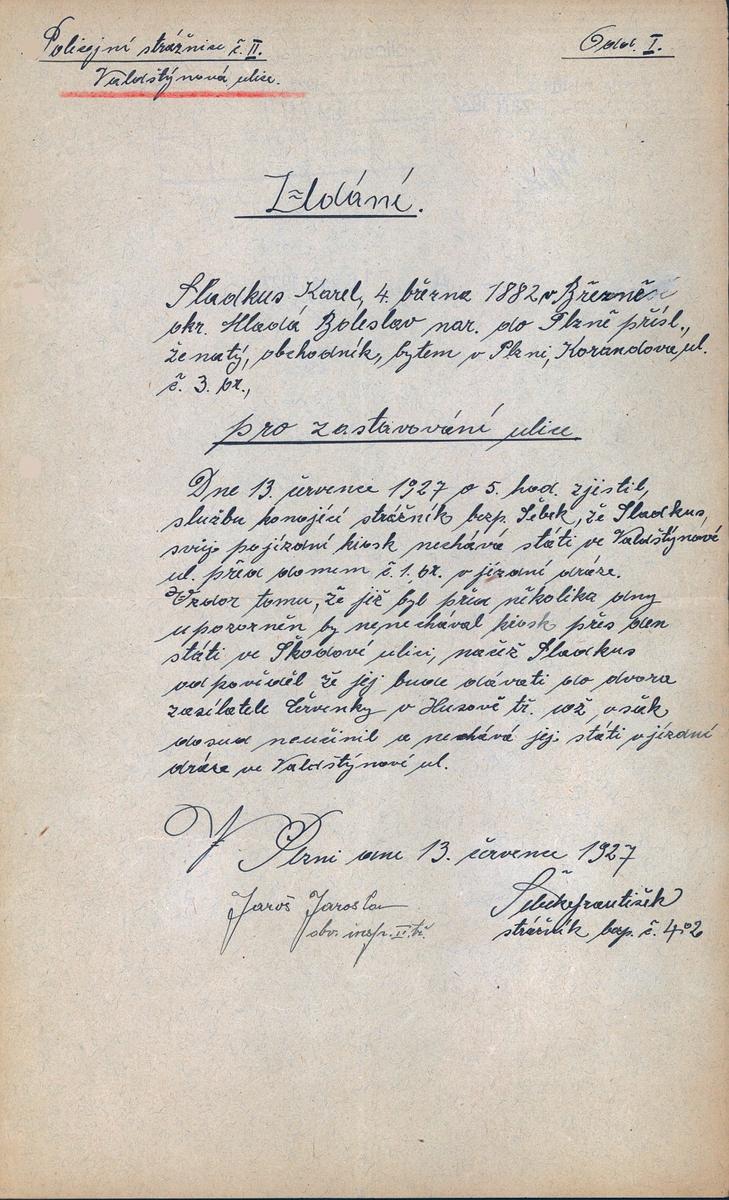 Policejní strážnice č. II.
Valdštýnová ulice.
Odd. I.
Udání.
Sladkus Karel, 4. března 1882 v Březně
okr. Mladá Boleslav nar. do Plzně přísl.,
ženatý, obchodník, bytem v Plzni, Korandova ul.
č. 3. or.,
pro zastavování ulice.
Dne 13. července 1927 o 5. hod. zjistil,
službu konající strážník bezp. Šebek, že Sladkus,
svůj pojízdní kiosk nechává státi ve Valdštýnové
ul. před domem č. 1. or. v jízdní dráze.
Vzdor tomu, že již byl před několika dny
upozorněn by nenechával kiosk přes den
státi ve Škodově ulici, načež Sladkus
odpověděl že jej bude dávati do dvora
zasílatele Červenky v Husově tř. což, však,
dosud neučinil a nechává jej státi v jízdní
dráze ve Valdštýnové ul.
V Plzni dne 13. července 1927
Jaroš Jaroslav
obv. insp. II. tř.
Šebek František
strážník bezp. č. 402